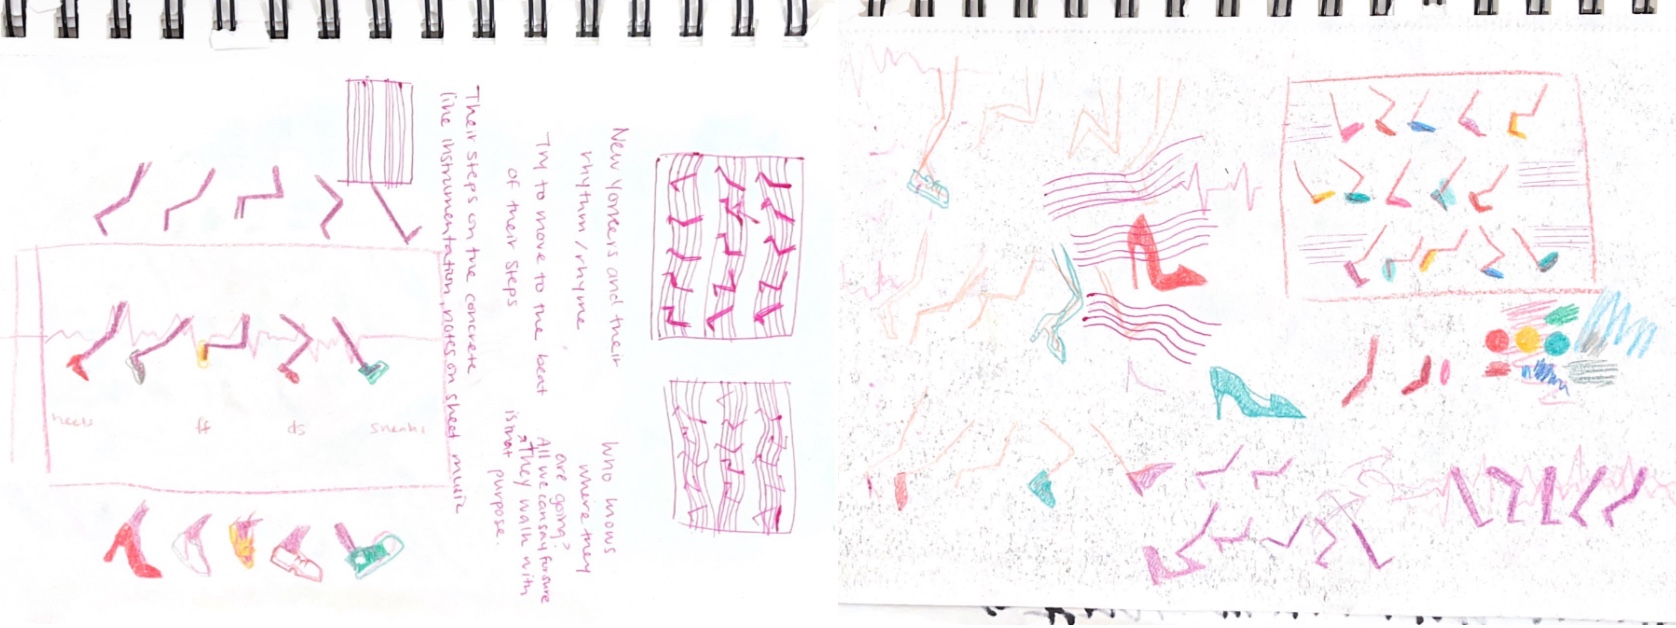 New Yorkers and their
rhythm / rhyme
Try to move to the beat
of their steps
Their steps on the concrete
like instrumentation, notes on sheet music
Who knows
where they
are going?
All we can say for sure
is that they walk with
purpose.
heels
ft
ds
sneaks